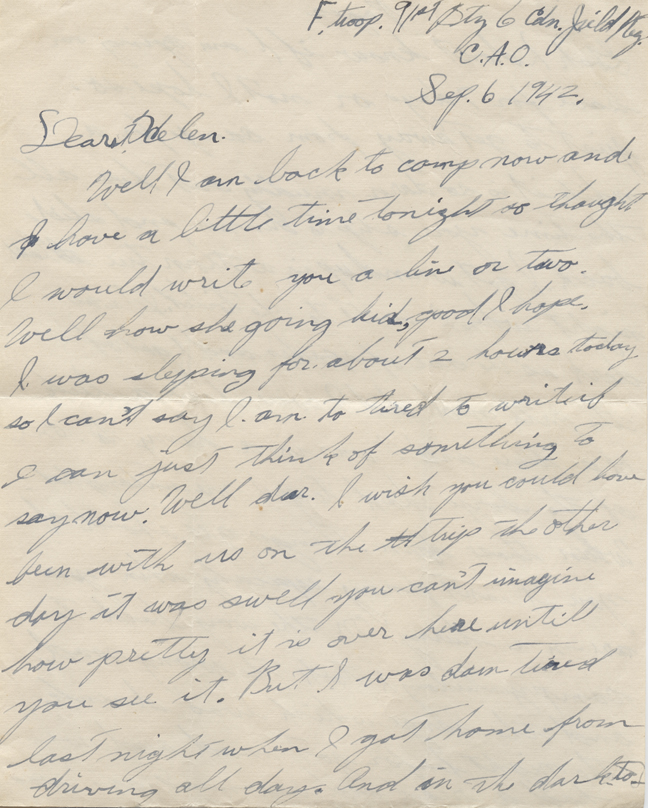 F. troop. 91st Bty 6 Cdn. Field Reg.
C.A.O.
Sep. 6 1942.
Dear Helen.
Well I am back to camp now and
I have a little time tonight so thought
I would write you a line or two.
Well how she going kid, good I hope.
I was slepping for about 2 hours today
so I can't say I am to tired to write if
I can just think of something to
say now. Well dear. I wish you could have
been with us on the trip the other
day it was swell you can't imagine
how pretty it is over here until
you see it. But I was dam tired
last night when I got home from
driving all day. And in the dark to